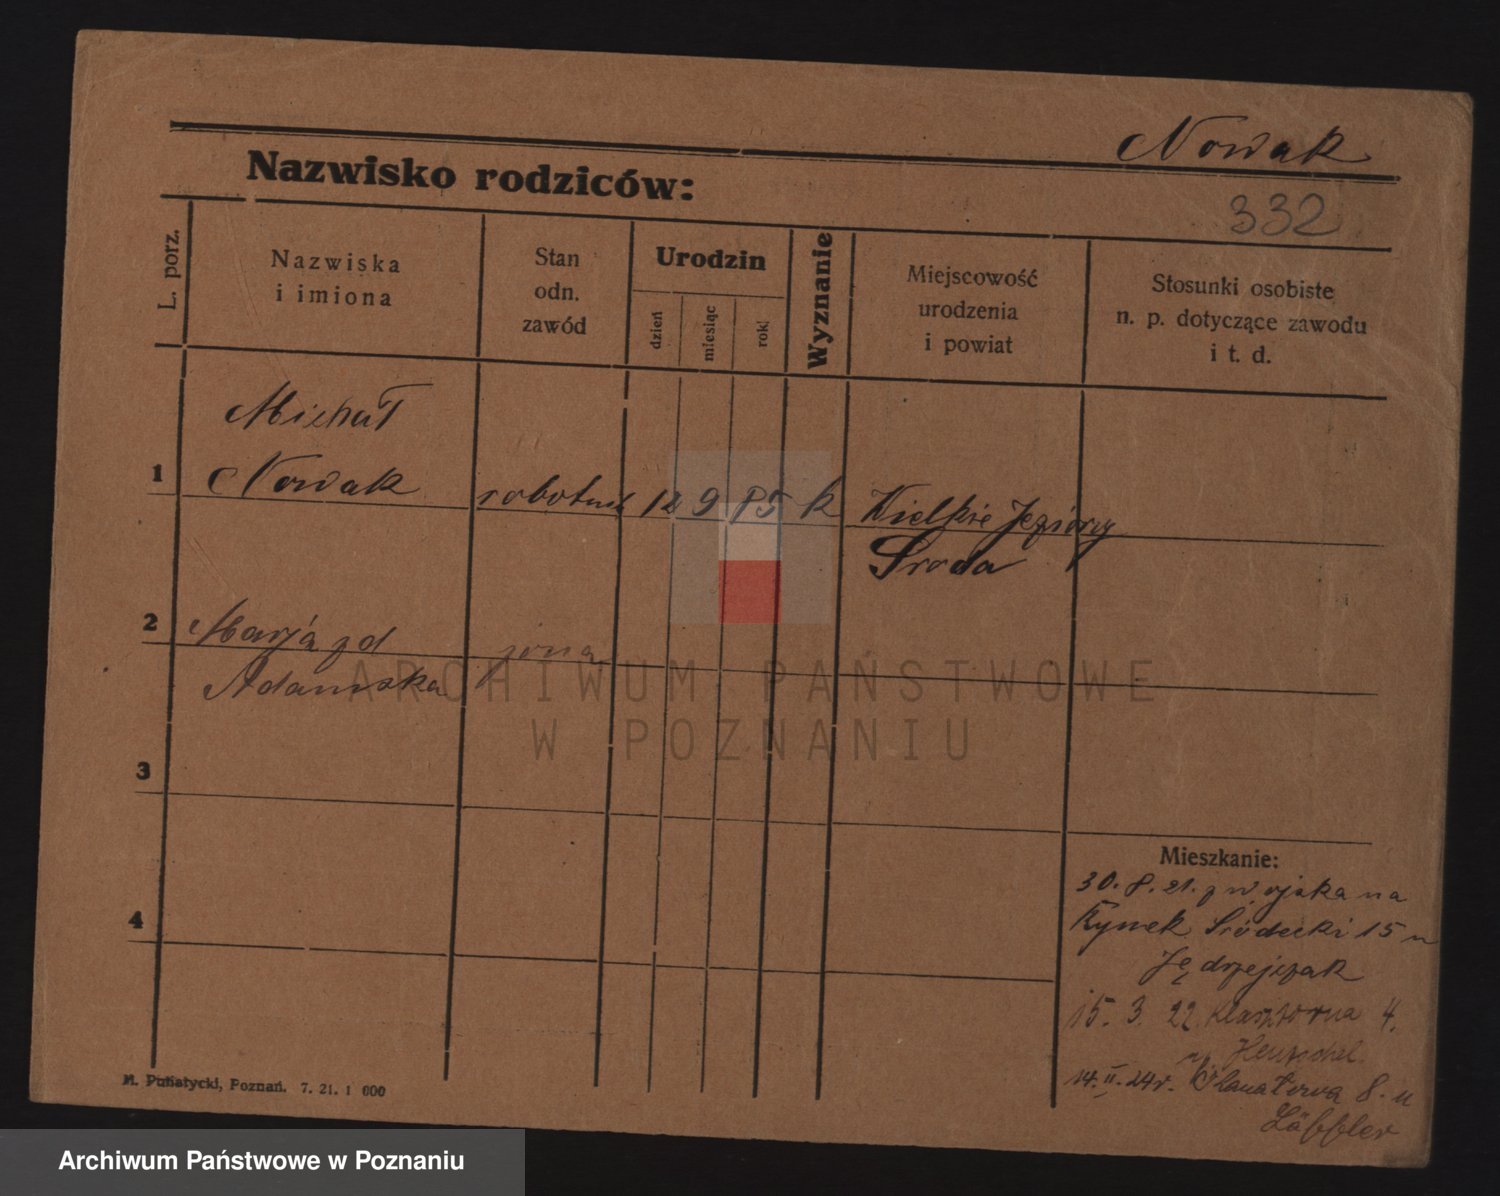 Nowak
Nazwisko rodziców:
332
L. porz.
Nazwiska
i imiona
Stan
odn.
zawód
Urodzin
dzień
miesiąc
rok
Wyznanie
Miejscowość
urodzenia
i powiat
Stosunki osobiste
n. p. dotyczące zawodu
i t. d.
Michał
1 Nowak robotnik 12 9 85 k Wielkie Jeziory
Środa
2 Marja zd żona
Adamska
ARCHIWUM PAŃSTWOWE
W POZNANIU
3
4
Mieszkanie:
30. 8. 21. z wojska na
Rynek Śródecki 15 u
Jędrzejczak
15. 3. 22. Klasztorna 4.
u Hentschel
14. II. 24r. 8. u
Löffler
M. Putiatycki, Poznań. 7. 21. 1 000
Archiwum Państwowe w Poznaniu